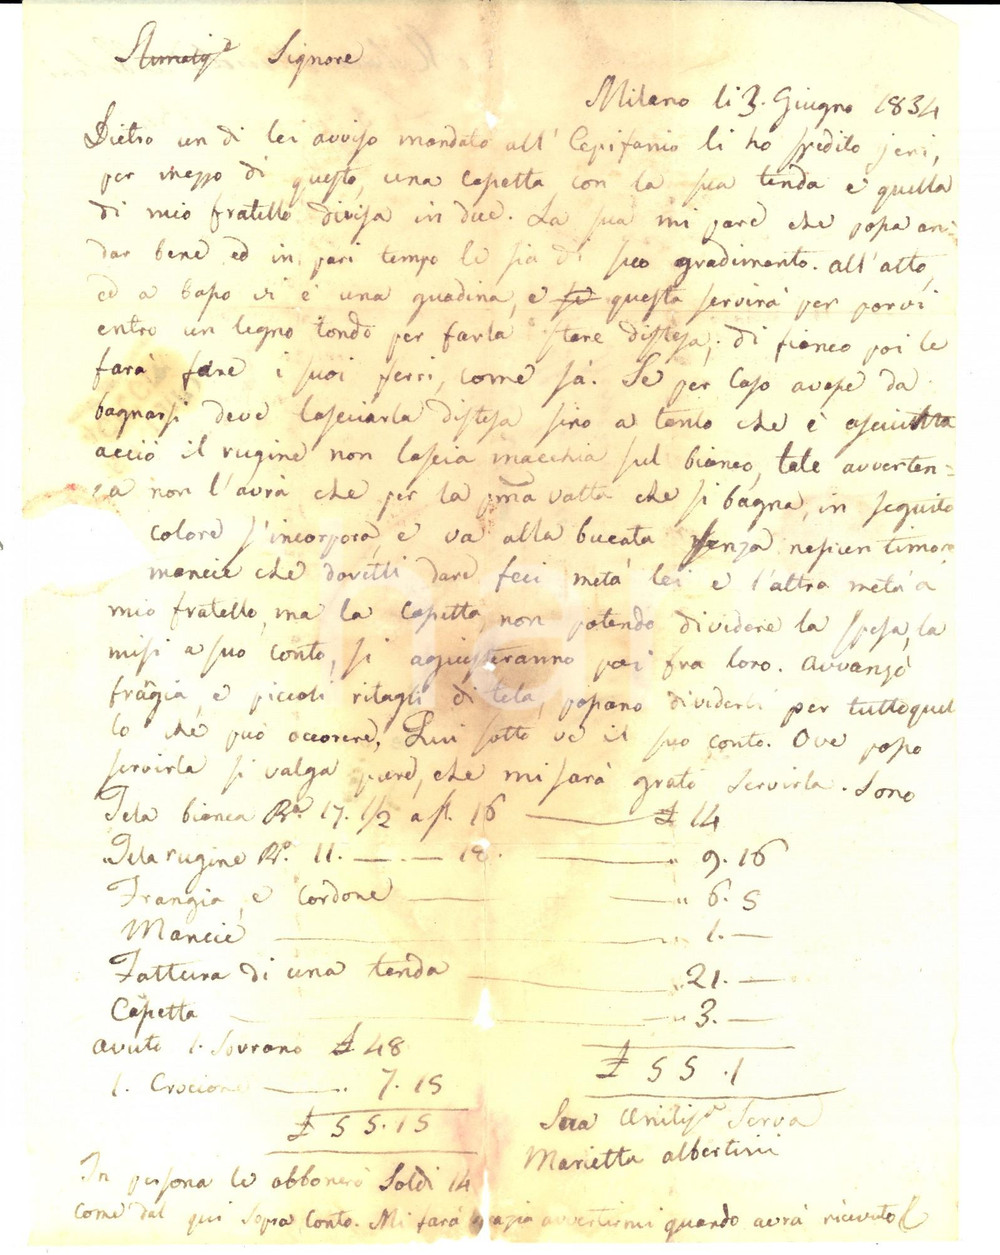 Stimatis.o Signore
Milano li 3. Giugno 1834
Dietro un di lei avviso mandato all' Cepifanio li ho spedito jeri,
per mezzo di questo, una Capetta con la sua tenda e quella
di mio fratello divisa in due. La sua mi pare che possa an=
dar bene ed in pari tempo le sia di suo gradimento. all'alto,
ed a basso vi è una guadina, e se questa servirà per porvi
entro un legno tondo per farla stare distesa; di fianco poi le
farà fare i suoi ferri, come sà. Se per Caso avesse da
bagnarsi deve lasciarla distesa sino a tanto che è asciutta
acciò il rugine non lascia macchia sul bianco, tale avverten=
za non l'avrà che per la pma volta che si bagna, in seguito
colore s'incorpora, e va alla bucata senza nessun timore
mancie che dovetti dare feci metà lei e l'altra metà a
mio fratello, ma la Capetta, non potendo dividere la spesa, la
misi a suo conto, si agiusteranno poi fra loro. Avvanzò
frangia, e piccoli ritagli di tela, possano dividerli per tuttoquel
lo che può occorere, Qui sotto ve il suo conto. Ove posso
servirla si valga pure, che mi sarà grato servirla. Sono
Tela bianca Bra. 17. 1/2 a sl. 16 £ 14
Tela rugine Br. 11. — — 18. " 9. 16
Frangia, e Cordone " 6. 5
Mancie " 1. —
Fattura di una tenda " 21. —
Capetta " 3. —
avuto 1. Sovrano £ 48
£ 55 . 1
1. Crocione 7. 15
£ 55. 15
Sua Umilis.a Serva
Marietta Albertini
In persona le abbonerò Soldi 14
come dal qui sopra Conto. Mi farà grazia avvertirmi quando avrà ricevuto